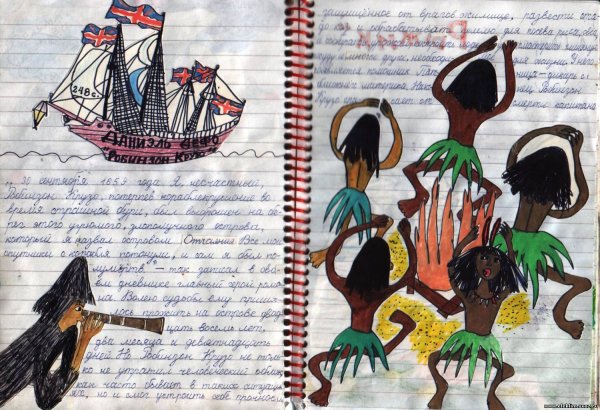 248 с.
ДАНИЭЛЬ ДЕФО
"РОБИНЗОН КРУЗО"
"30 сентября 1659 года. Я, несчастный,
Робинзон Крузо, потерпев кораблекрушение во
время страшной бури, был выброшен на бе-
рег этого угрюмого, злополучного острова,
который я назвал островом Отчаяния. Все мои
спутники с корабля потонули, и сам я был по-
лумертв" – так записал в сво-
ем дневнике главный герой рома-
на. Волею судьбы ему пришл-
ось прожить на острове двад-
цать восемь лет,
два месяца и девятнадцать
дней. Но Робинзон Крузо не толь-
ко не утратил человеческий облик,
как часто бывает в таких ситуаци-
ях, но и смог устроить себе прочное,
защищённое от врагов жилище, развести ста-
до коз, обрабатывать землю для посева риса,
Робинзон
Крузо спасает от смерти капитана